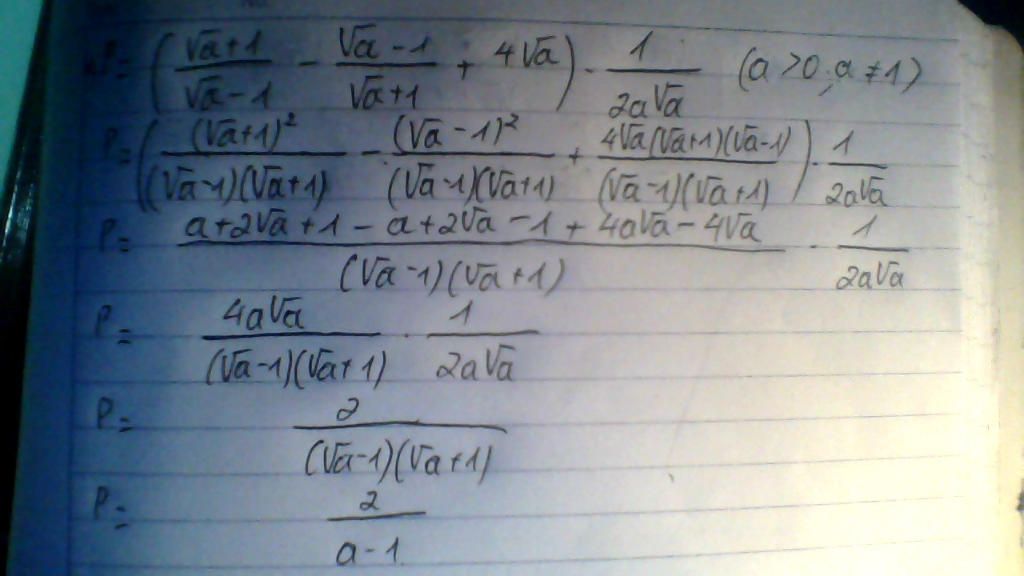 P = ( (√a+1)/(√a−1) − (√a−1)/(√a+1) + 4√a ) · 1/(2a√a) (a>0; a≠1)
P = ( (√a+1)²/((√a−1)(√a+1)) − (√a−1)²/((√a−1)(√a+1)) + 4√a(√a+1)(√a−1)/((√a−1)(√a+1)) ) · 1/(2a√a)
P = (a+2√a+1−a+2√a−1+4a√a−4√a)/((√a−1)(√a+1)) · 1/(2a√a)
P = 4a√a/((√a−1)(√a+1)) · 1/(2a√a)
P = 2/((√a−1)(√a+1))
P = 2/(a−1)